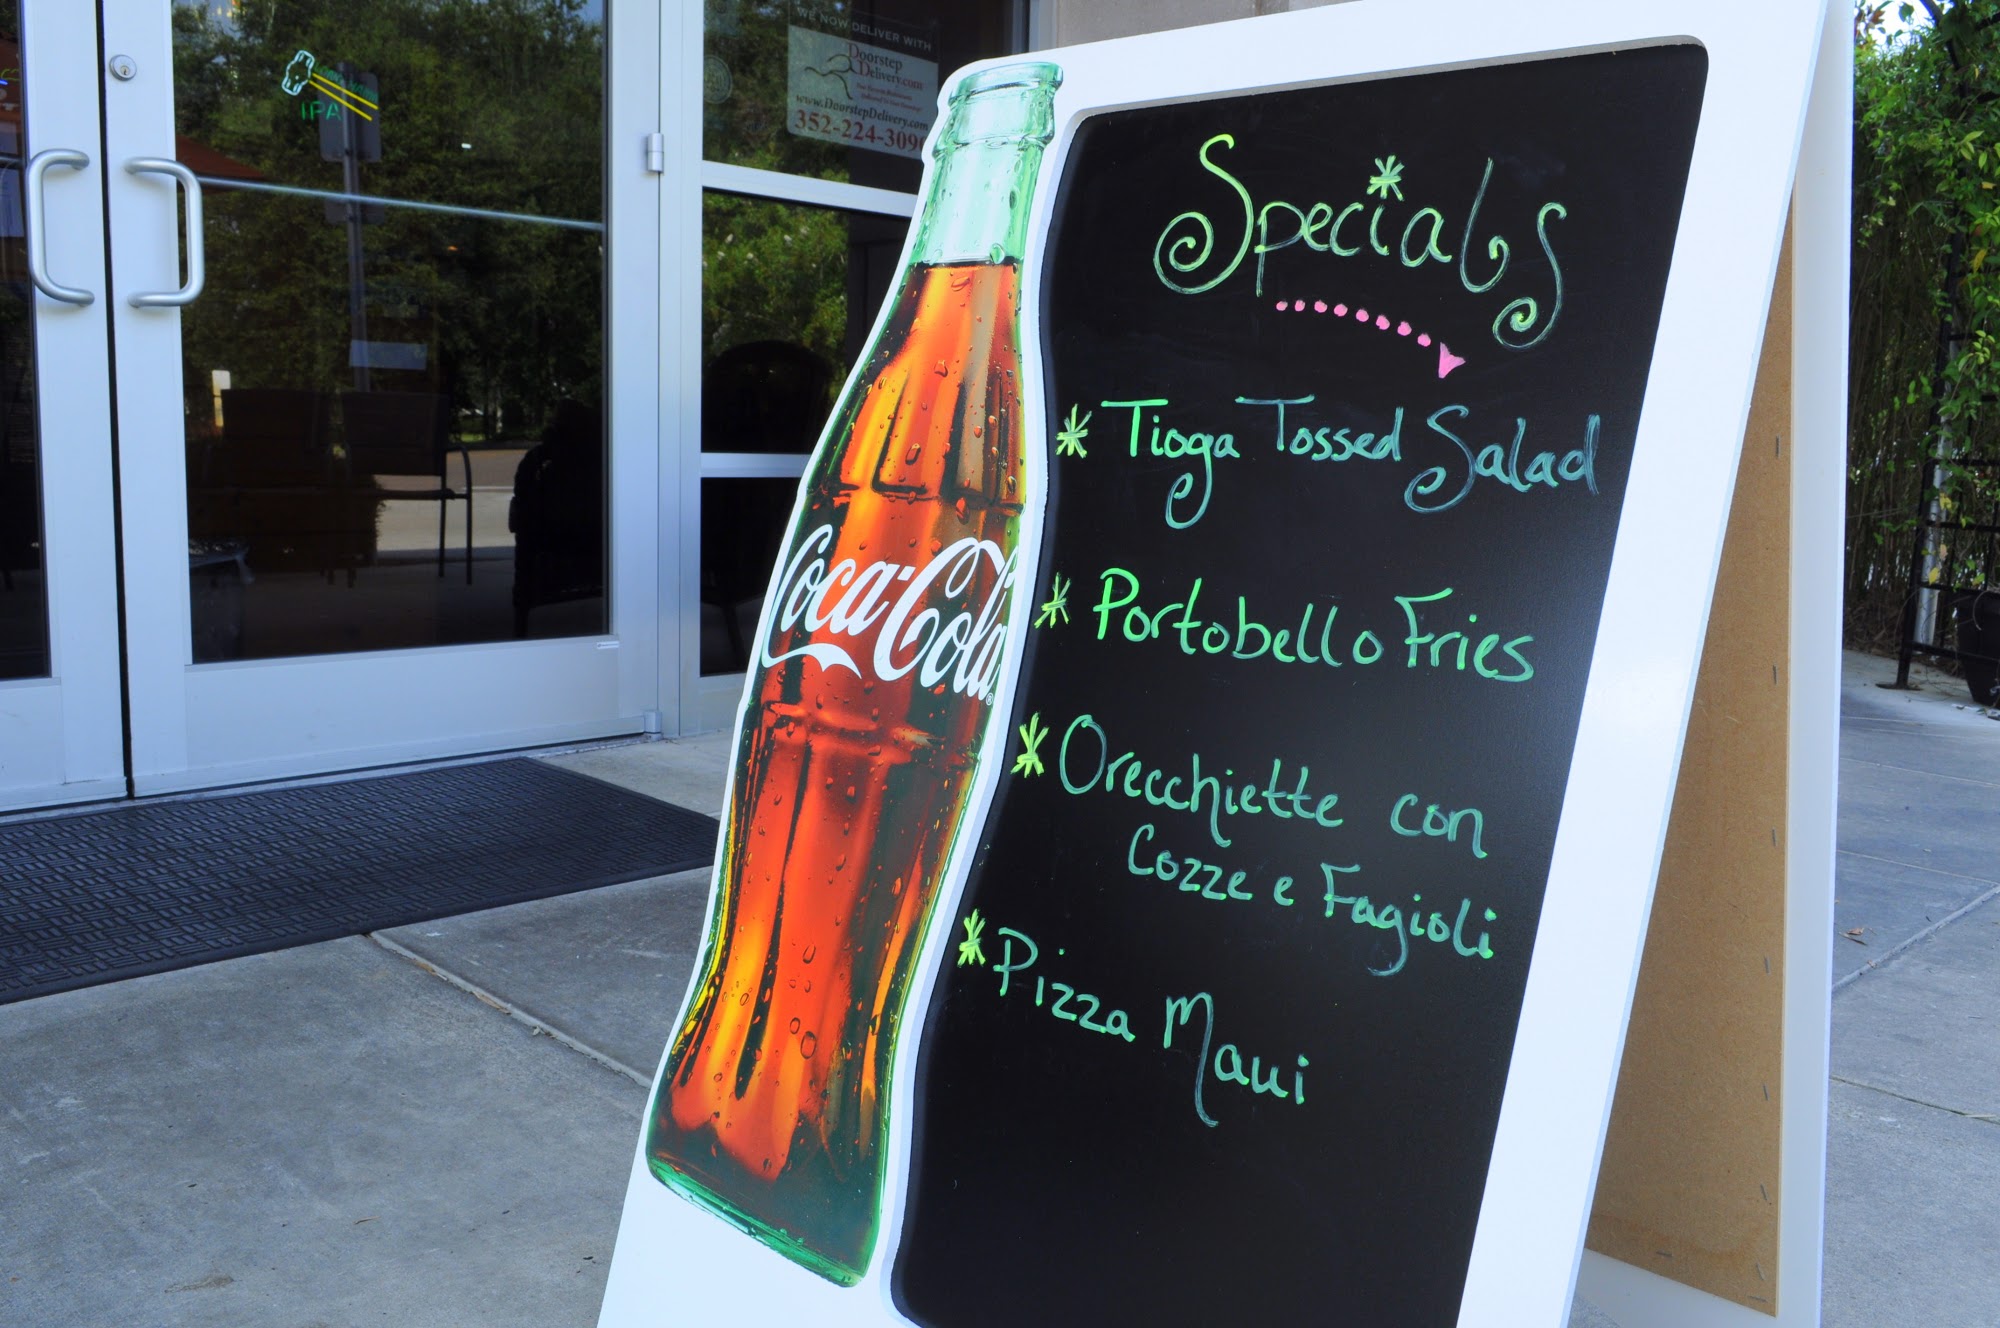 WE NOW DELIVER WITH
Doorstep
Delivery.com
www.DoorstepDelivery.com
352-224-309
IPA
Coca-Cola
Specials
Tioga Tossed Salad
Portobello Fries
Orecchiette con
Cozze e Fagioli
Pizza Maui